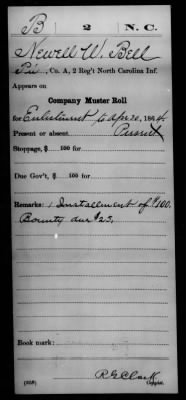 B 2 N.C.
Newell W. Bell
Pvt., Co. A, 2 Reg't North Carolina Inf.
Appears on
Company Muster Roll
for Enlistment to Apr 30, 1864.
Present or absent Present
Stoppage, $ 100 for
Due Gov't, $ 100 for
Remarks: 1 Installment of $100.
Bounty due $23.
Book mark:
R G Clark
Copyist.